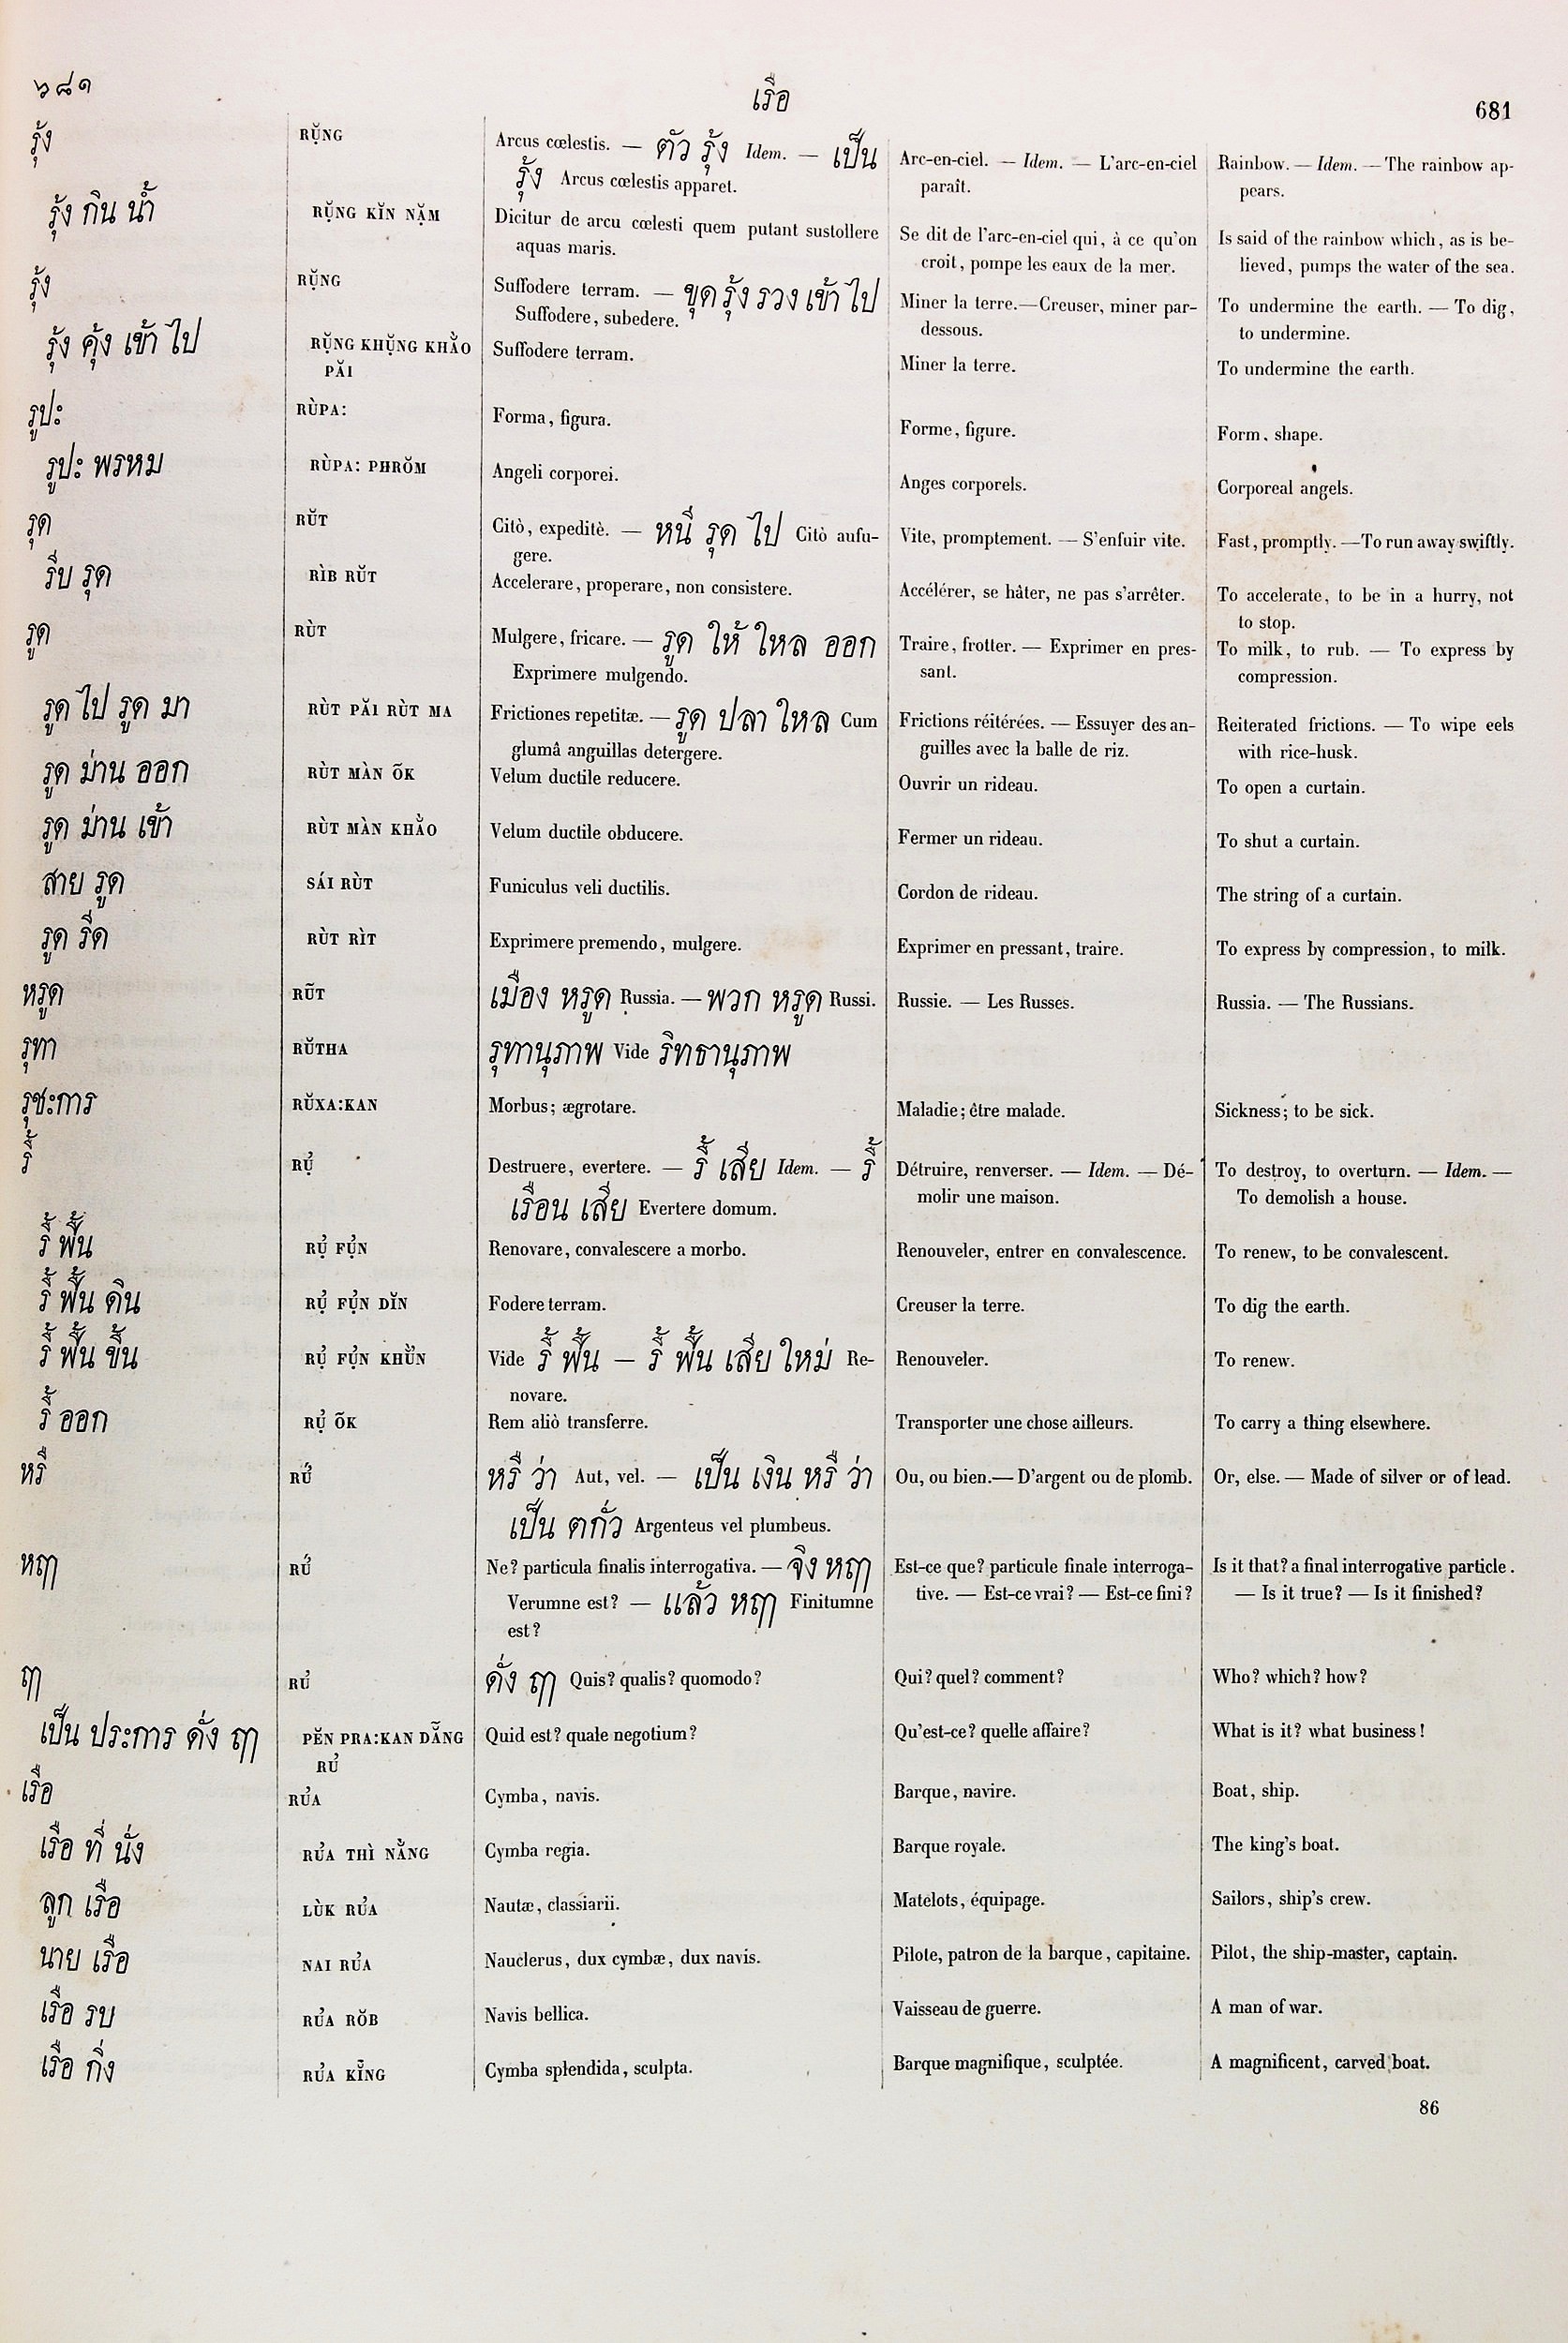 ๖๘๑ เรือ 681
รุ้ง RỤ̆NG Arcus cœlestis. — ตัว รุ้ง Idem. — เป็น Arc-en-ciel. — Idem. — L'arc-en-ciel Rainbow. — Idem. — The rainbow ap-
รุ้ง Arcus cœlestis apparet. paraît. pears.
รุ้ง กิน น้ำ RỤ̆NG KĬN NẶM Dicitur de arcu cœlesti quem putant sustollere Se dit de l'arc-en-ciel qui, à ce qu'on Is said of the rainbow which, as is be-
aquas maris. croit, pompe les eaux de la mer. lieved, pumps the water of the sea.
รุ้ง RỤ̆NG Suffodere terram. — ขุด รุ้ง รวง เข้า ไป Miner la terre.—Creuser, miner par- To undermine the earth. — To dig,
Suffodere, subedere. dessous. to undermine.
รุ้ง คุ้ง เข้า ไป RỤ̆NG KHỤ̆NG KHẰO Suffodere terram. Miner la terre. To undermine the earth.
PĂI
รูปะ RÙPA: Forma, figura. Forme, figure. Form, shape.
รูปะ พรหม RÙPA: PHRŎM Angeli corporei. Anges corporels. Corporeal angels.
รุด RŬT Citò, expeditè. — หนี รุด ไป Citò aufu- Vite, promptement. — S'enfuir vite. Fast, promptly. —To run away swiftly.
gere.
รีบ รุด RÌB RŬT Accelerare, properare, non consistere. Accélérer, se hâter, ne pas s'arrêter. To accelerate, to be in a hurry, not
to stop.
รูด RÙT Mulgere, fricare. — รูด ให้ ไหล ออก Traire, frotter. — Exprimer en pres- To milk, to rub. — To express by
Exprimere mulgendo. sant. compression.
รูด ไป รูด มา RÙT PĂI RÙT MA Frictiones repetitæ. — รูด ปลา ไหล Cum Frictions réitérées. — Essuyer des an- Reiterated frictions. — To wipe eels
glumâ anguillas detergere. guilles avec la balle de riz. with rice-husk.
รูด ม่าน ออก RÙT MÀN ÕK Velum ductile reducere. Ouvrir un rideau. To open a curtain.
รูด ม่าน เข้า RÙT MÀN KHẰO Velum ductile obducere. Fermer un rideau. To shut a curtain.
สาย รูด SÁI RÙT Funiculus veli ductilis. Cordon de rideau. The string of a curtain.
รูด รีด RÙT RÌT Exprimere premendo, mulgere. Exprimer en pressant, traire. To express by compression, to milk.
หรูด RŨT เมือง หรูด Russia. — พวก หรูด Russi. Russie. — Les Russes. Russia. — The Russians.
รุทา RŬTHA รุทานุภาพ Vide ริทธานุภาพ
รุชะการ RŬXA:KAN Morbus; ægrotare. Maladie; être malade. Sickness; to be sick.
รื้ RỤ̉ Destruere, evertere. — รื้ เสีย Idem. — รื้ Détruire, renverser. — Idem. — Dé- To destroy, to overturn. — Idem. —
เรือน เสีย Evertere domum. molir une maison. To demolish a house.
รื้ ฟื้น RỤ̉ FỤ̉N Renovare, convalescere a morbo. Renouveler, entrer en convalescence. To renew, to be convalescent.
รื้ ฟื้น ดิน RỤ̉ FỤ̉N DĬN Fodere terram. Creuser la terre. To dig the earth.
รื้ ฟื้น ขึ้น RỤ̉ FỤ̉N KHỦ̀N Vide รื้ ฟื้น — รื้ ฟื้น เสีย ใหม่ Re- Renouveler. To renew.
novare.
รื้ ออก RỤ̉ ÕK Rem aliò transferre. Transporter une chose ailleurs. To carry a thing elsewhere.
หรื RỦ́ หรื ว่า Aut, vel. — เป็น เงิน หรื ว่า Ou, ou bien.— D'argent ou de plomb. Or, else. — Made of silver or of lead.
เป็น ตกั่ว Argenteus vel plumbeus.
หฤๅ RỦ́ Ne? particula finalis interrogativa. — จิง หฤๅ Est-ce que? particule finale interroga- Is it that? a final interrogative particle.
Verumne est? — แล้ว หฤๅ Finitumne tive. — Est-ce vrai? — Est-ce fini? — Is it true? — Is it finished?
est?
ฤๅ RỦ ดั่ง ฤๅ Quis? qualis? quomodo? Qui? quel? comment? Who? which? how?
เป็น ประการ ดั่ง ฤๅ PĔN PRA:KAN DẴNG Quid est? quale negotium? Qu'est-ce? quelle affaire? What is it? what business!
RỦ
เรือ RỦA Cymba, navis. Barque, navire. Boat, ship.
เรือ ที่ นั่ง RỦA THÌ NẰNG Cymba regia. Barque royale. The king's boat.
ลูก เรือ LÙK RỦA Nautæ, classiarii. Matelots, équipage. Sailors, ship's crew.
นาย เรือ NAI RỦA Nauclerus, dux cymbæ, dux navis. Pilote, patron de la barque, capitaine. Pilot, the ship-master, captain.
เรือ รบ RỦA RŎB Navis bellica. Vaisseau de guerre. A man of war.
เรือ กิ่ง RỦA KĬ̃NG Cymba splendida, sculpta. Barque magnifique, sculptée. A magnificent, carved boat.
86